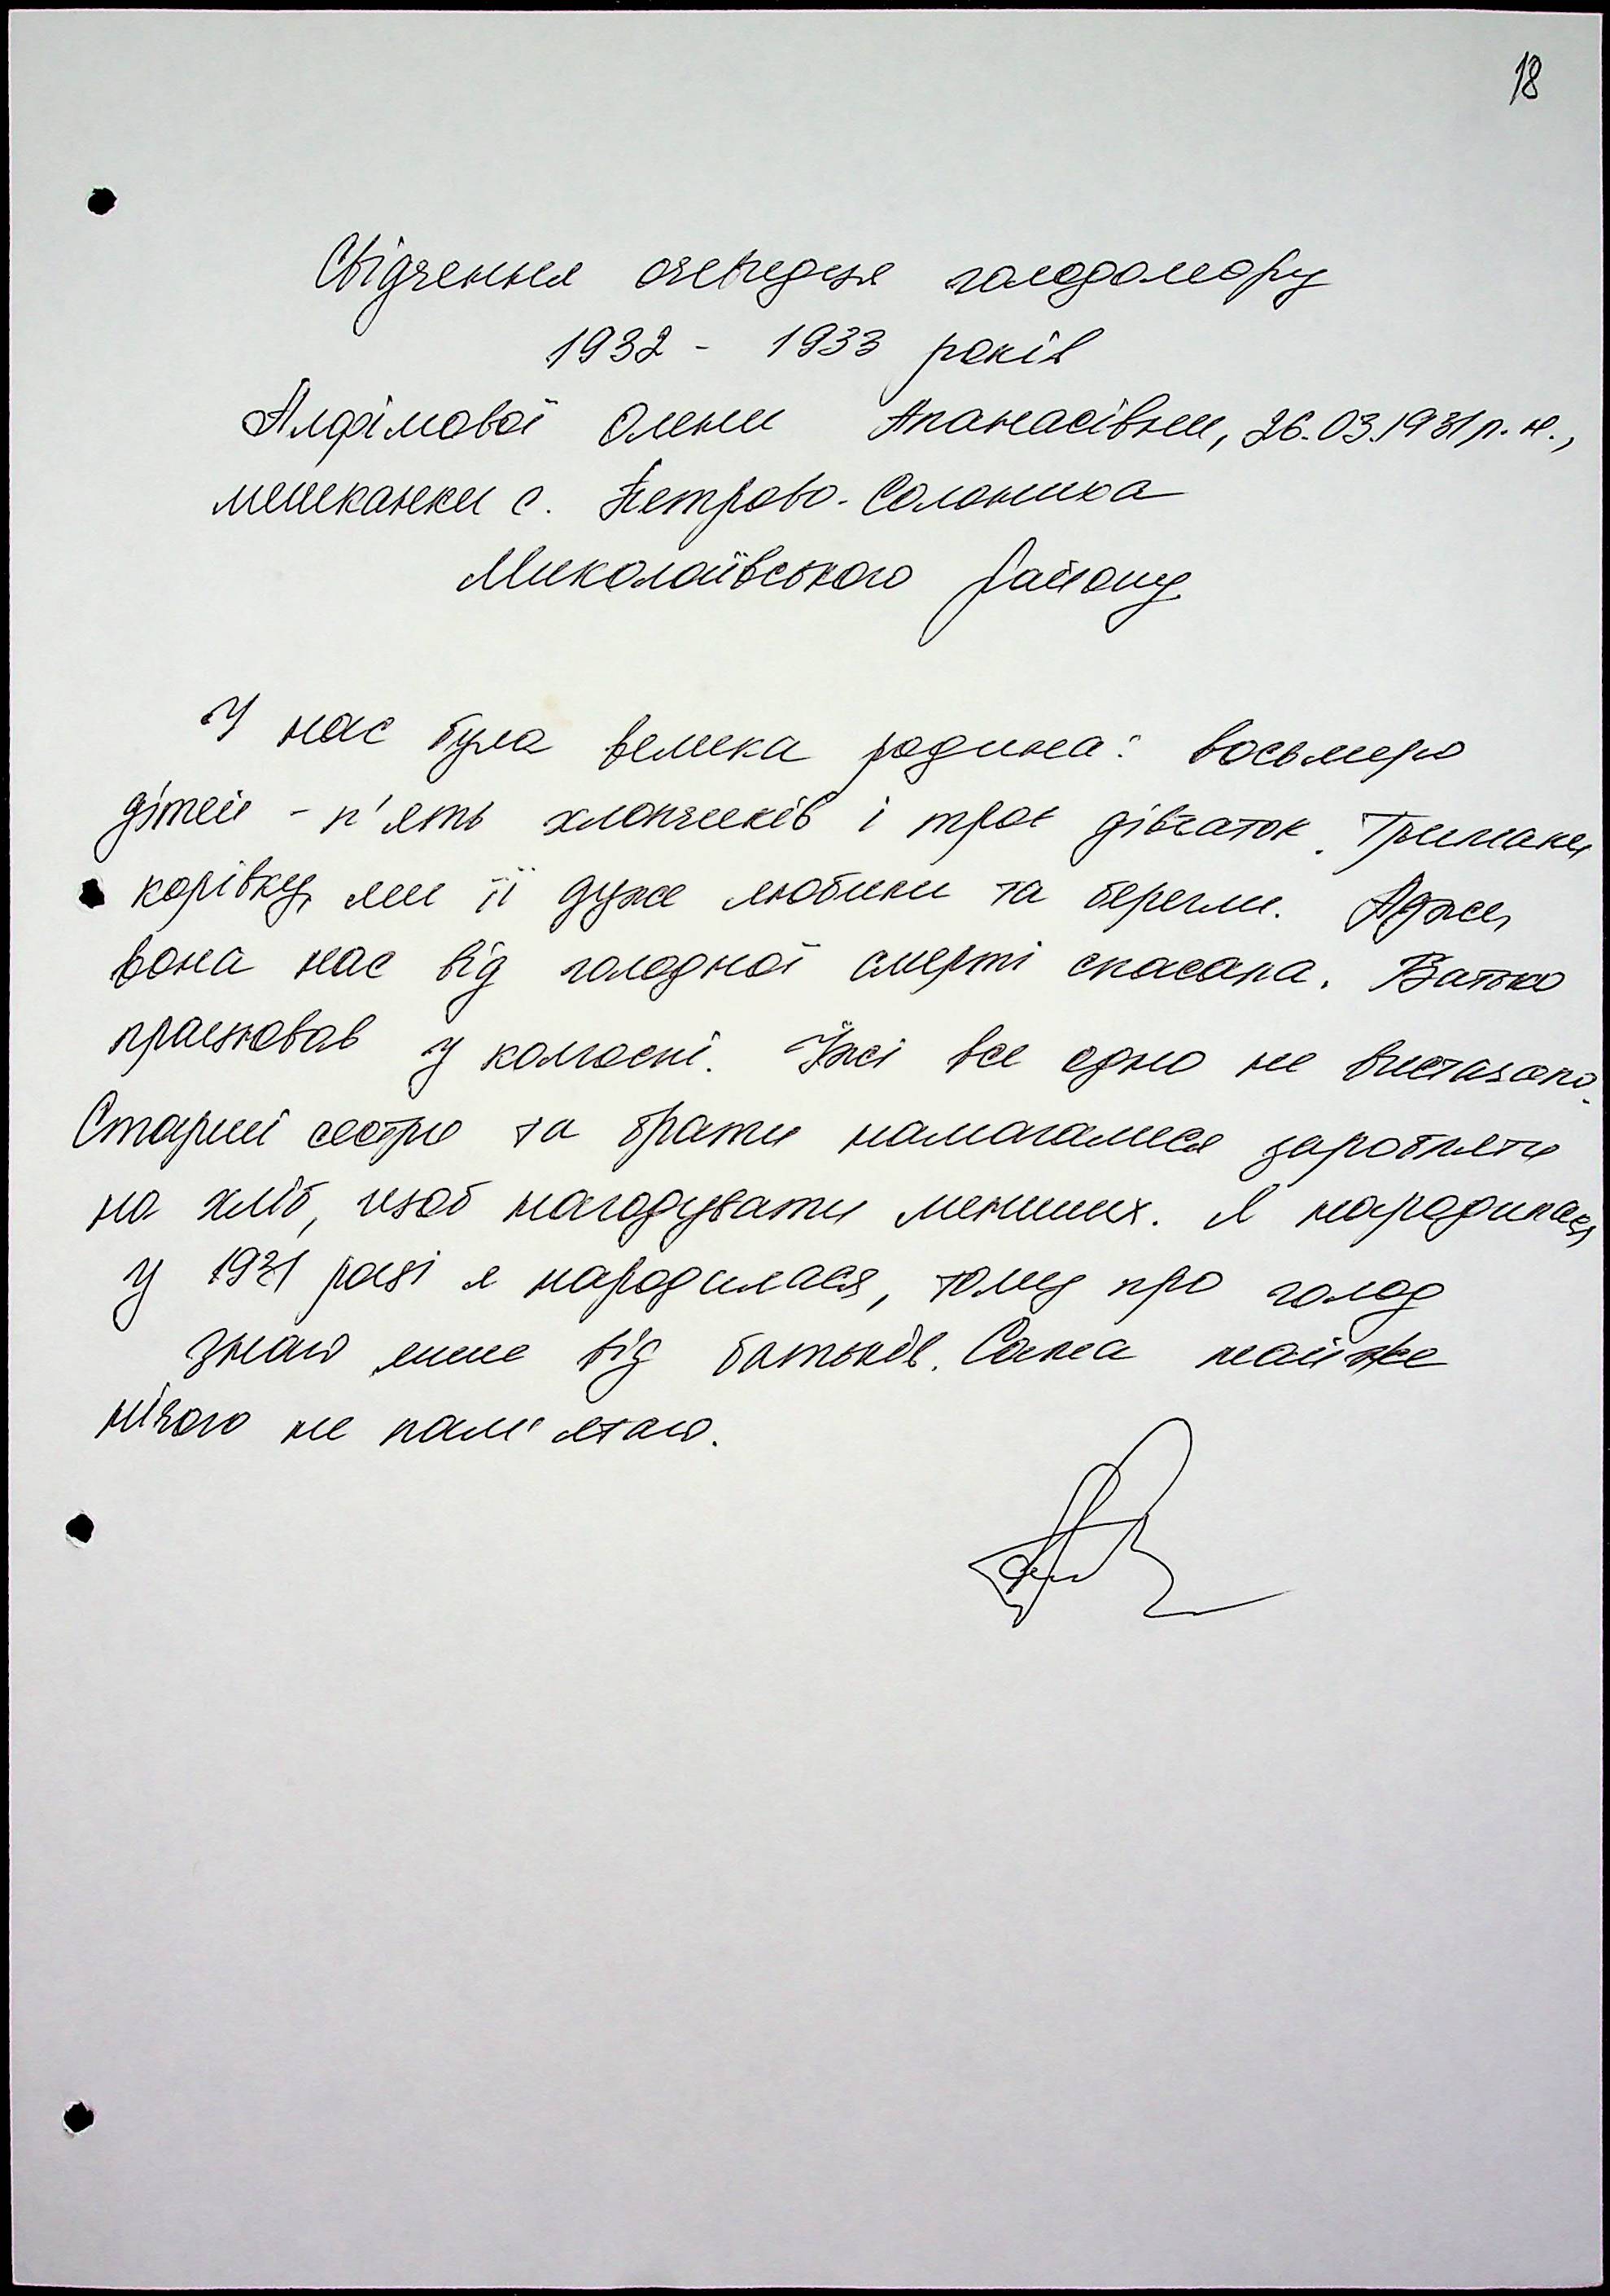 18
Свідчення очевидця голодомору
1932 - 1933 років
Алфімової Олени Апанасівни, 26.03.1931 р.н.,
мешканки с. Петрово-Солониха
Миколаївського району
У нас була велика родина: восьмеро
дітей - п'ять хлопчиків і троє дівчаток. Тримали
корівку, ми її дуже любили та берегли. Адже,
вона нас від голодної смерті спасала. Батько
працював у колгоспі. Їжі все одно не вистачало.
Старші сестри та брати намагалися заробляти
на хліб, щоб нагодувати менших. Я народилася
у 1931 році я народилася, тому про голод
знаю лише від батьків. Сама майже
нічого не пам'ятаю.